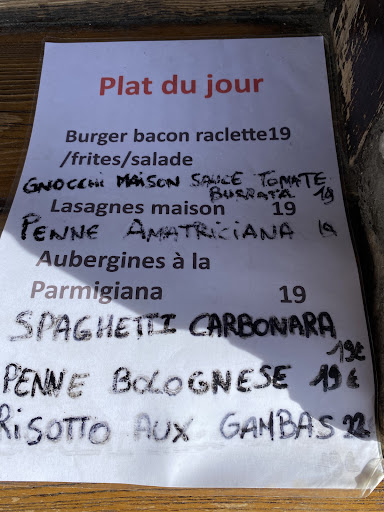 Plat du jour
Burger bacon raclette19
/frites/salade
GNOCCHI MAISON SAUCE TOMATE
BURRATA 19
Lasagnes maison 19
PENNE AMATRICIANA 19
Aubergines à la
Parmigiana 19
SPAGHETTI CARBONARA
19€
PENNE BOLOGNESE 19€
RISOTTO AUX GAMBAS 22€